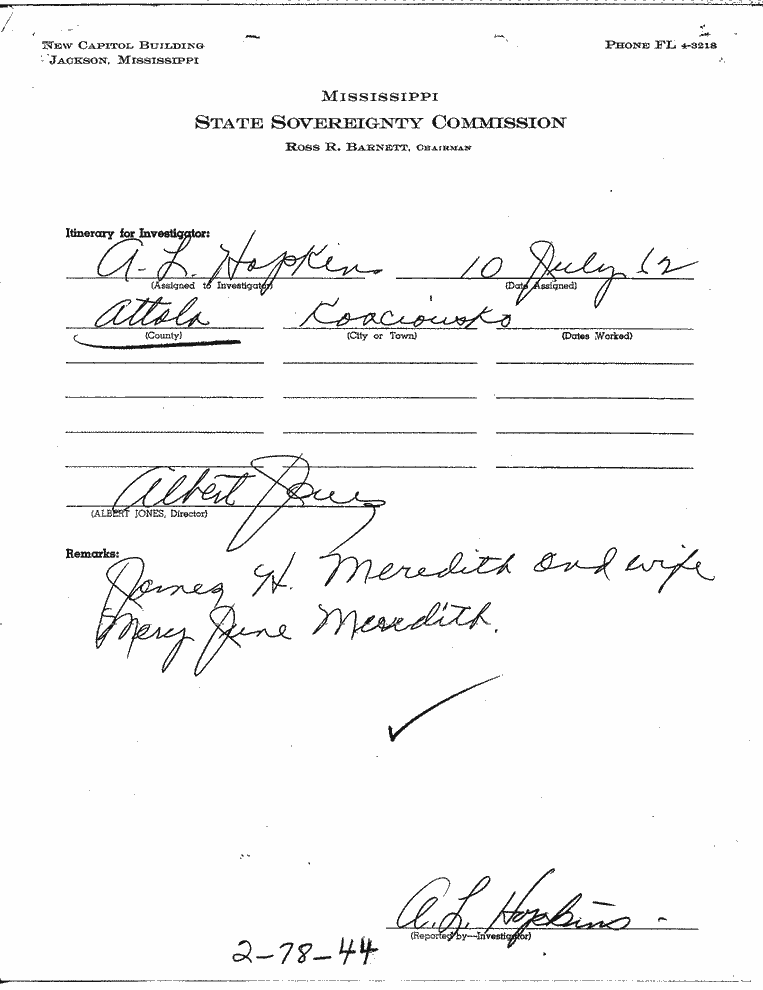 NEW CAPITOL BUILDING
JACKSON, MISSISSIPPI
PHONE FL 4-3218
MISSISSIPPI
STATE SOVEREIGNTY COMMISSION
ROSS R. BARNETT, CHAIRMAN
Itinerary for Investigator:
A. L. Hopkins 10 July 62
(Assigned to Investigator) (Date Assigned)
Attala Kosciousko
(County) (City or Town) (Dates Worked)
Albert Jones
(ALBERT JONES, Director)
Remarks:
James H. Meredith and wife
Mary June Meredith.
A. L. Hopkins
(Reported by—Investigator)
2-78-44